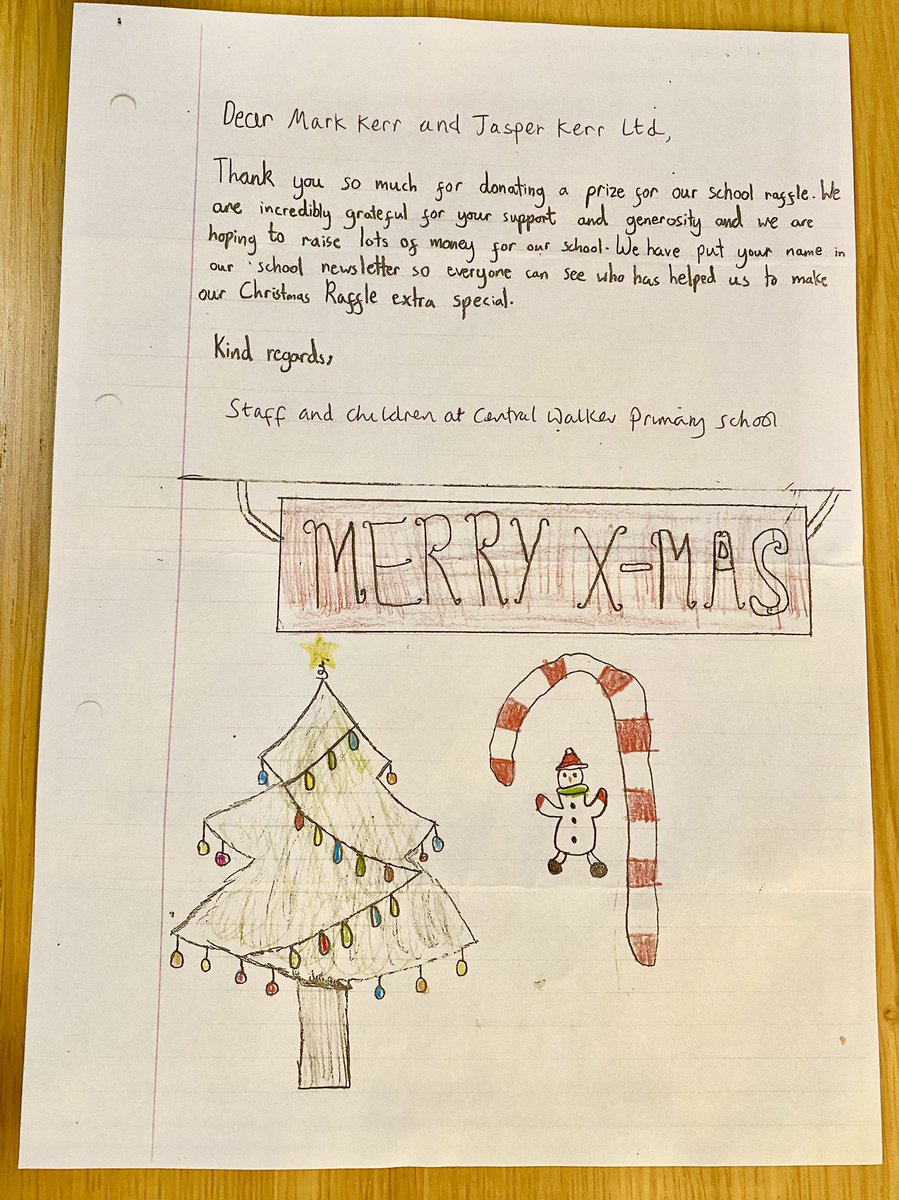 Dear Mark Kerr and Jasper Kerr Ltd,
Thank you so much for donating a prize for our school raffle. We
are incredibly grateful for your support and generosity and we are
hoping to raise lots of money for our school. We have put your name in
our school newsletter so everyone can see who has helped us to make
our Christmas Raffle extra special.
Kind regards,
Staff and children at Central Walker Primary school
MERRY X-MAS